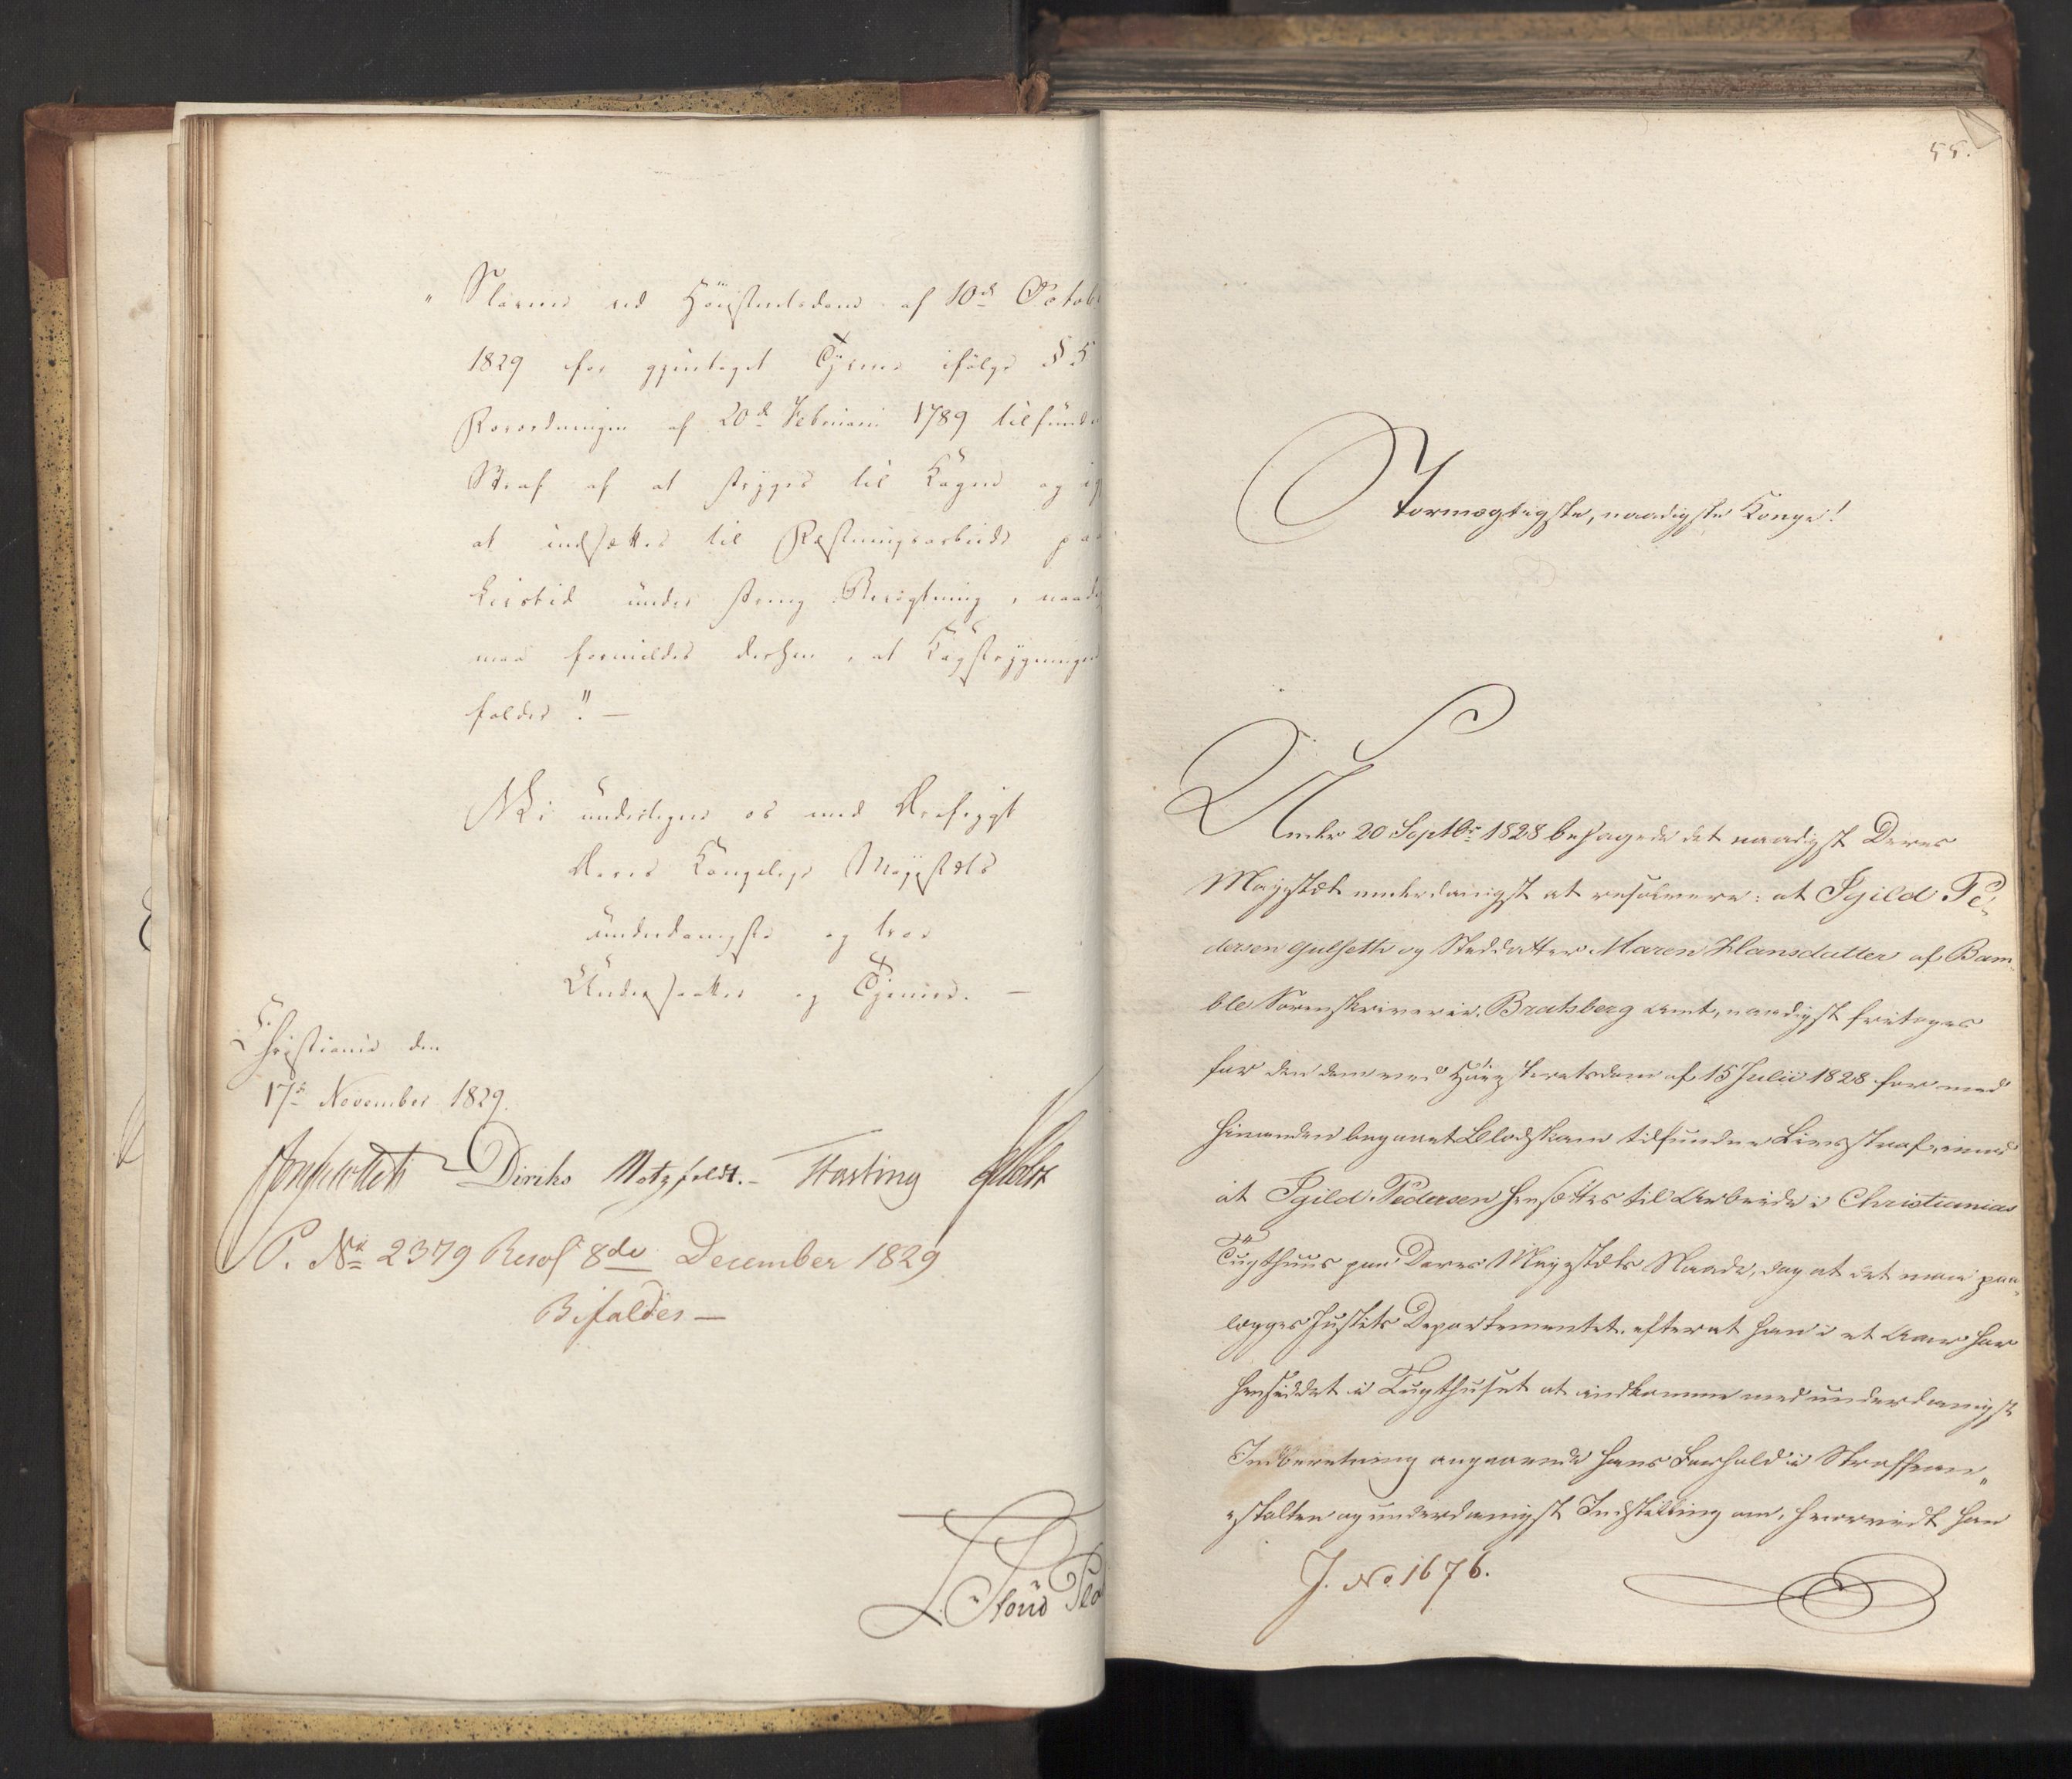 " Slaven ved Höiesteretsdom af 10de Octob
1829 for gjentaget Tyverie ifølge § 5
Forordningen af 20de Februarii 1789 tilfundne
Straf af at stryges til Kagen og
at indsættes til Fæstningsarbeide paa
Livstid under streng Bevogtning, naadigst
maa formildes derhen, at Kagstrygningen
falder". —
Vi undertegne os med Ærefrygt
Deres Kongelige Majestæts
underdanigste og troe
Undersaatter og Tjenere. —
Christiania den
17de November 1829.
Diriks Motzfeldt. - Fasting
P. No 2379 Resol 8de December 1829
Bifaldes —
55.
Stormægtigste, naadigste Konge!
Under 20 Septbr: 1828 behagede det naadigst Deres
Majestæt underdanigst at resolvere: at Egild Pe-
dersen Gulseth og Steddatter Maren Hansdatter af Bam-
ble Sorenskriverie, Bratsberg Amt, naadigst fritages
for den dem ved Høiesteretsdom af 15 Julii 1828 for med
hinanden begaaet Blodskam tilfundne Livsstraf, imod
at Egild Pedersen hensættes til Arbeide i Christianias
Tugthuus paa Deres Majestæts Naade, dog at det maae paa-
lægges Justits Departementet, efterat han i et Aar har
hensiddet i Tugthuset at indkomme med underdanigst
Indberetning angaaende hans Forhold i Straffean-
stalten og underdanigst Indstilling om, hvorvidt han
J. No. 1676.